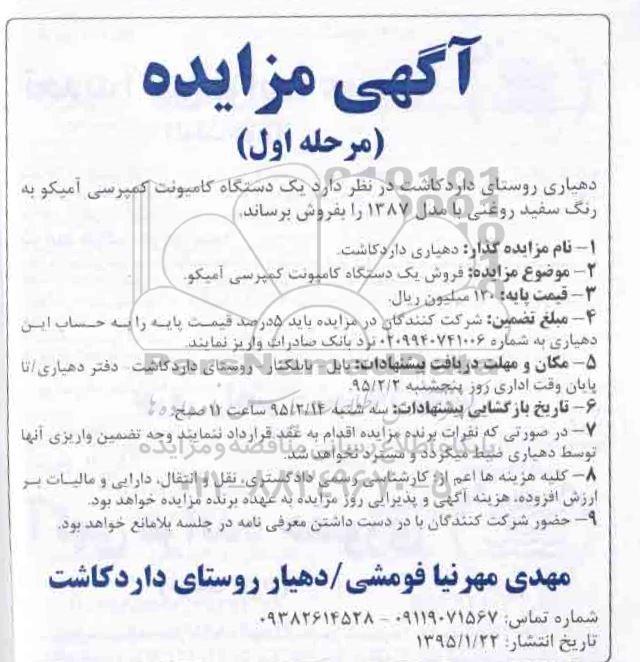 آگهی مزایده
(مرحله اول)
دهیاری روستای داردکاشت در نظر دارد یک دستگاه کامیونت کمپرسی آمیکو به
رنگ سفید روغنی با مدل ۱۳۸۷ را بفروش برساند.
۱- نام مزایده گذار: دهیاری داردکاشت.
۲- موضوع مزایده: فروش یک دستگاه کامیونت کمپرسی آمیکو.
۳- قیمت پایه: ۱۲۰ میلیون ریال.
۴- مبلغ تضمین: شرکت کنندگان در مزایده باید ۵درصد قیمت پایه را به حساب این
دهیاری به شماره ۰۲۰۹۹۴۰۷۴۱۰۰۶ نزد بانک صادرات واریز نمایند.
۵- مکان و مهلت دریافت پیشنهادات: بابل - بابلکنار - روستای داردکاشت- دفتر دهیاری/تا
پایان وقت اداری روز پنجشنبه ۹۵/۲/۲
۶- تاریخ بازگشایی پیشنهادات: سه شنبه ۹۵/۲/۱۴ ساعت ۱۱ صبح.
۷- در صورتی که نفرات برنده مزایده اقدام به عقد قرارداد ننمایند وجه تضمین واریزی آنها
توسط دهیاری ضبط میگردد و مسترد نخواهد شد.
۸- کلیه هزینه ها اعم از: کارشناسی رسمی دادگستری، نقل و انتقال، دارایی و مالیات بر
ارزش افزوده، هزینه آگهی و پذیرایی روز مزایده به عهده برنده مزایده خواهد بود.
۹- حضور شرکت کنندگان با در دست داشتن معرفی نامه در جلسه بلامانع خواهد بود.
مهدی مهرنیا فومشی/دهیار روستای داردکاشت
شماره تماس: ۰۹۱۱۹۰۷۱۵۶۷ - ۰۹۳۸۲۶۱۴۵۲۸
تاریخ انتشار: ۱۳۹۵/۱/۲۲
ParsNamadData